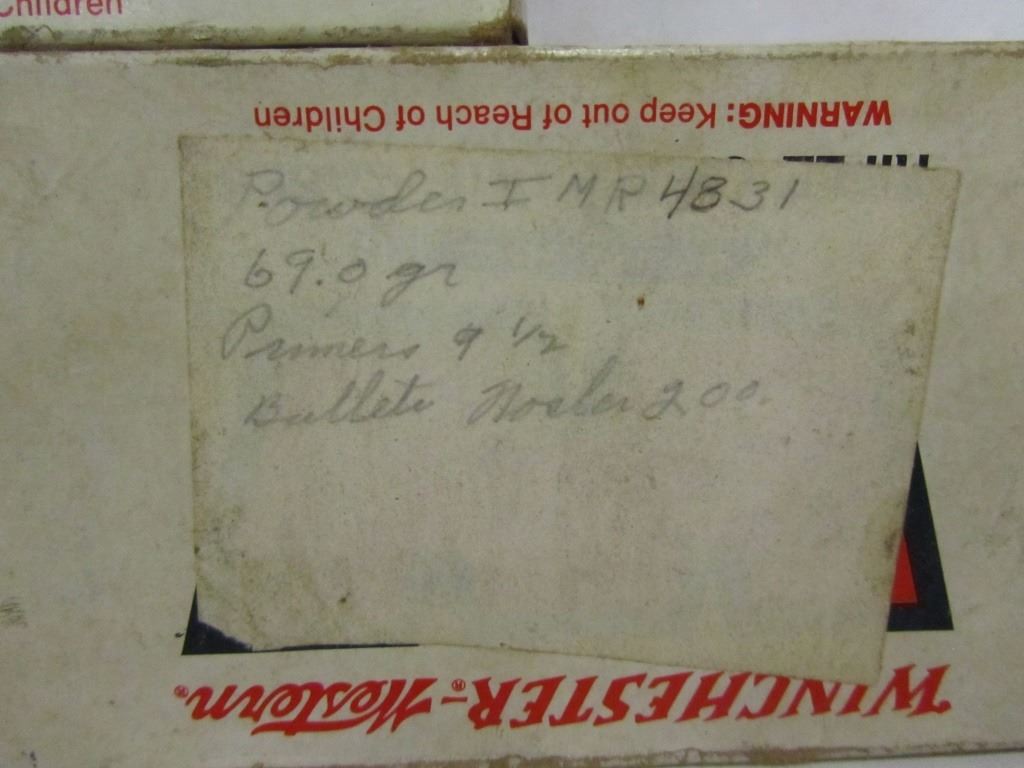 Children
WARNING: Keep out of Reach of Children
Powder IMR 4831
69.0 gr
Primers 9 1/2
Bullets Nosler 200.
WINCHESTER®-Western®